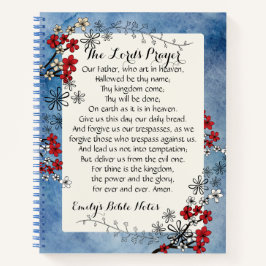 The Lords Prayer
Our Father, who art in heaven,
Hallowed be thy name;
Thy kingdom come;
Thy will be done,
On earth as it is in heaven.
Give us this day our daily bread.
And forgive us our trespasses, as we
forgive those who trespass against us.
And lead us not into temptation;
But deliver us from the evil one.
For thine is the kingdom,
the power and the glory,
for ever and ever. Amen.
Emily's Bible Notes